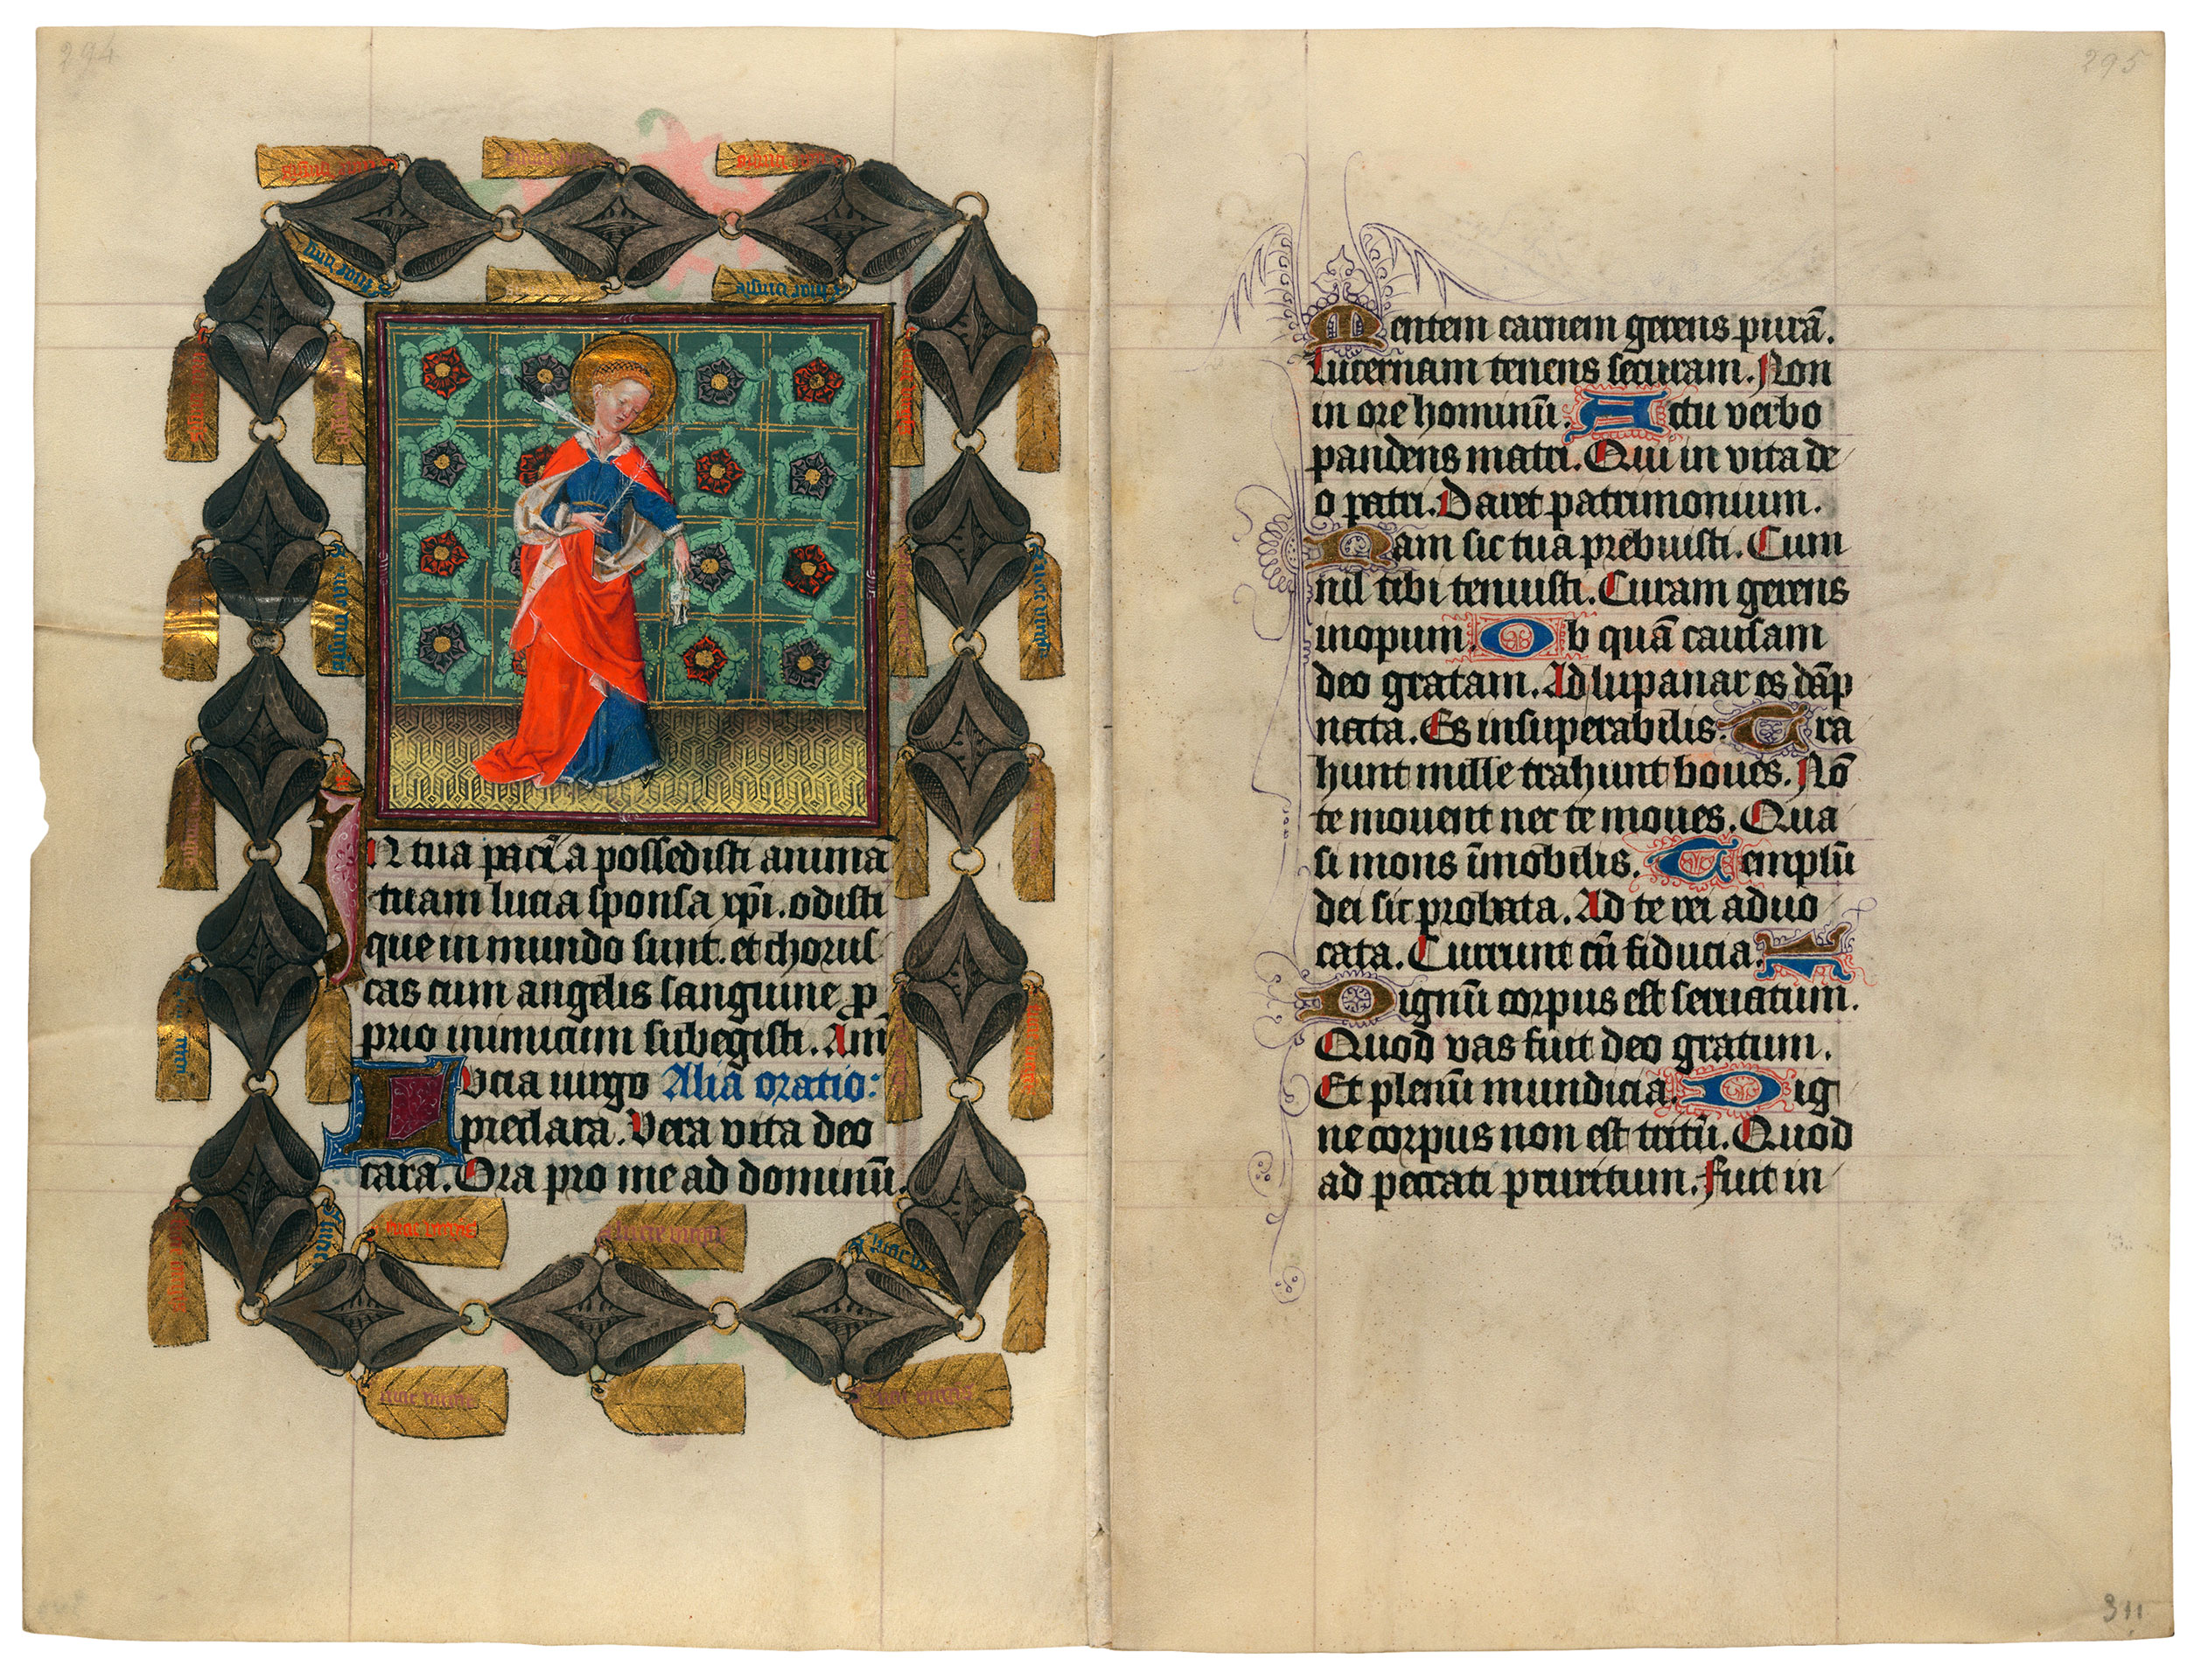 294
In tua paciĕa possedisti animā
tuam lucia sponsa xp̄i. odisti
que in mundo sunt. et chorus
cas cum angelis sanguine ꝓ
prio inimicum subegisti. Am̄
Lucia uirgo Aliā oratio:
preclara. Vera vita deo
cara. Ora pro me ad dominū.
295
Mentem carnem gerens purā.
Lucernam tenens securam. Non
in ore hominū. Actu verbo
pandens matri. Qui in vita de
o patri. Daret patrimonium.
Nam sic tua prebuisti. Cum
nil tibi tenuisti. Curam gerens
inopum. Ob quā causam
deo gratam. Ad lupanar es dāp
nata. Es insuperabilis. Tra
hunt mille trahunt boues. Nō
te mouent nec te moues. Qua
si mons īmobilis. Templū
dei sic probata. Ad te rei aduo
cata. Currunt cū fiducia.
Dignū corpus est seruatum.
Quod vas fuit deo gratum.
Et plenū mundicia. Dig
ne corpus non est tritū. Quod
ad peccati pruritum. Fuit in
311